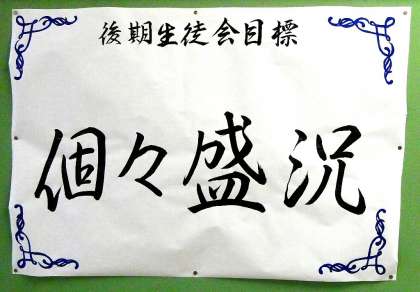 後期生徒会目標
個々盛況